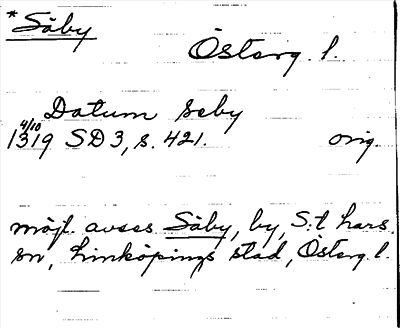 * Säby
Österg. l.
Datum Seby
4/10
1319 SD3, s. 421. orig.
möjl. avses Säby, by, S:t Lars
sn, Linköpings stad, Österg. l.